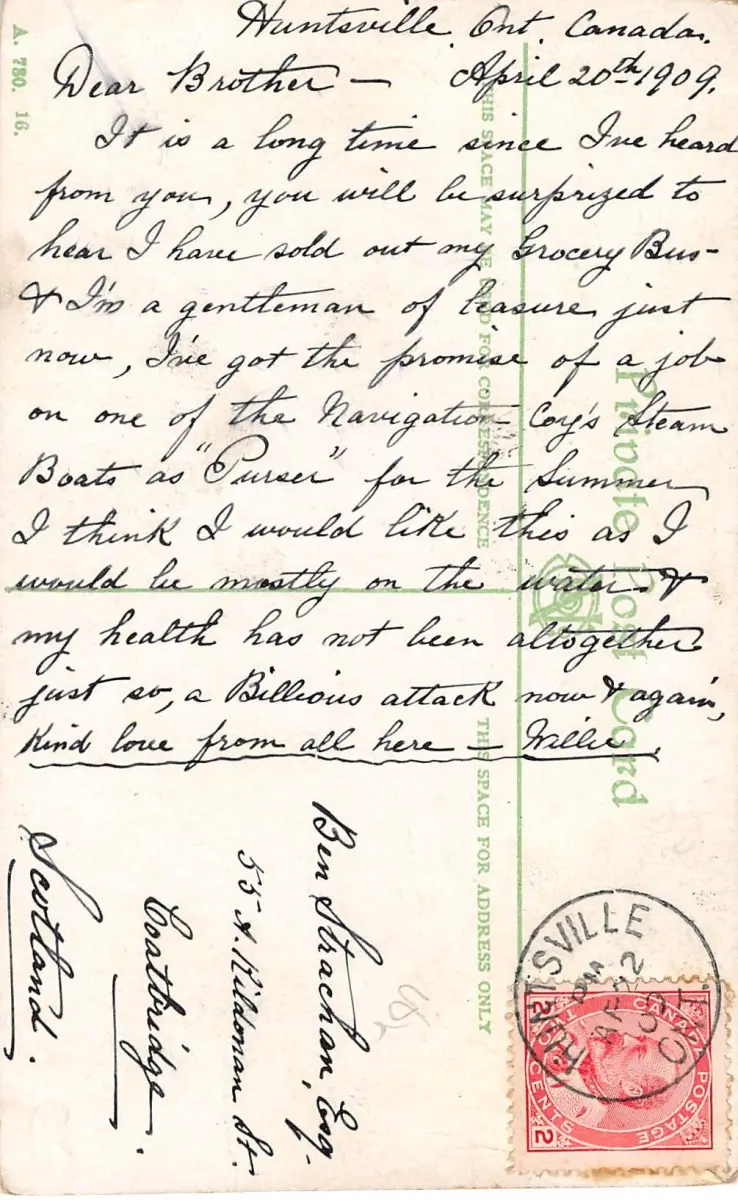 Huntsville, Ont. Canada.
Dear Brother — April 20th 1909.
It is a long time since I've heard
from you, you will be surprized to
hear I have sold out my Grocery Bus-
& I'm a gentleman of leasure just
now, I've got the promise of a job
on one of the Navigation Coy's Steam
Boats as "Purser" for the Summer
I think I would like this as I
would be mostly on the water &
my health has not been altogether
just so, a Billious attack now & again,
Kind love from all here — Willie.
Ben Strachan, Esq.
55 A. Kildonan St.
Coatbridge.
Scotland.
A. 780. 16.
THIS SPACE MAY BE USED FOR CORRESPONDENCE
THIS SPACE FOR ADDRESS ONLY
Private Post Card
HUNTSVILLE
PM
AP 22
09
ONT.
CANADA POSTAGE
TWO CENTS
2 2